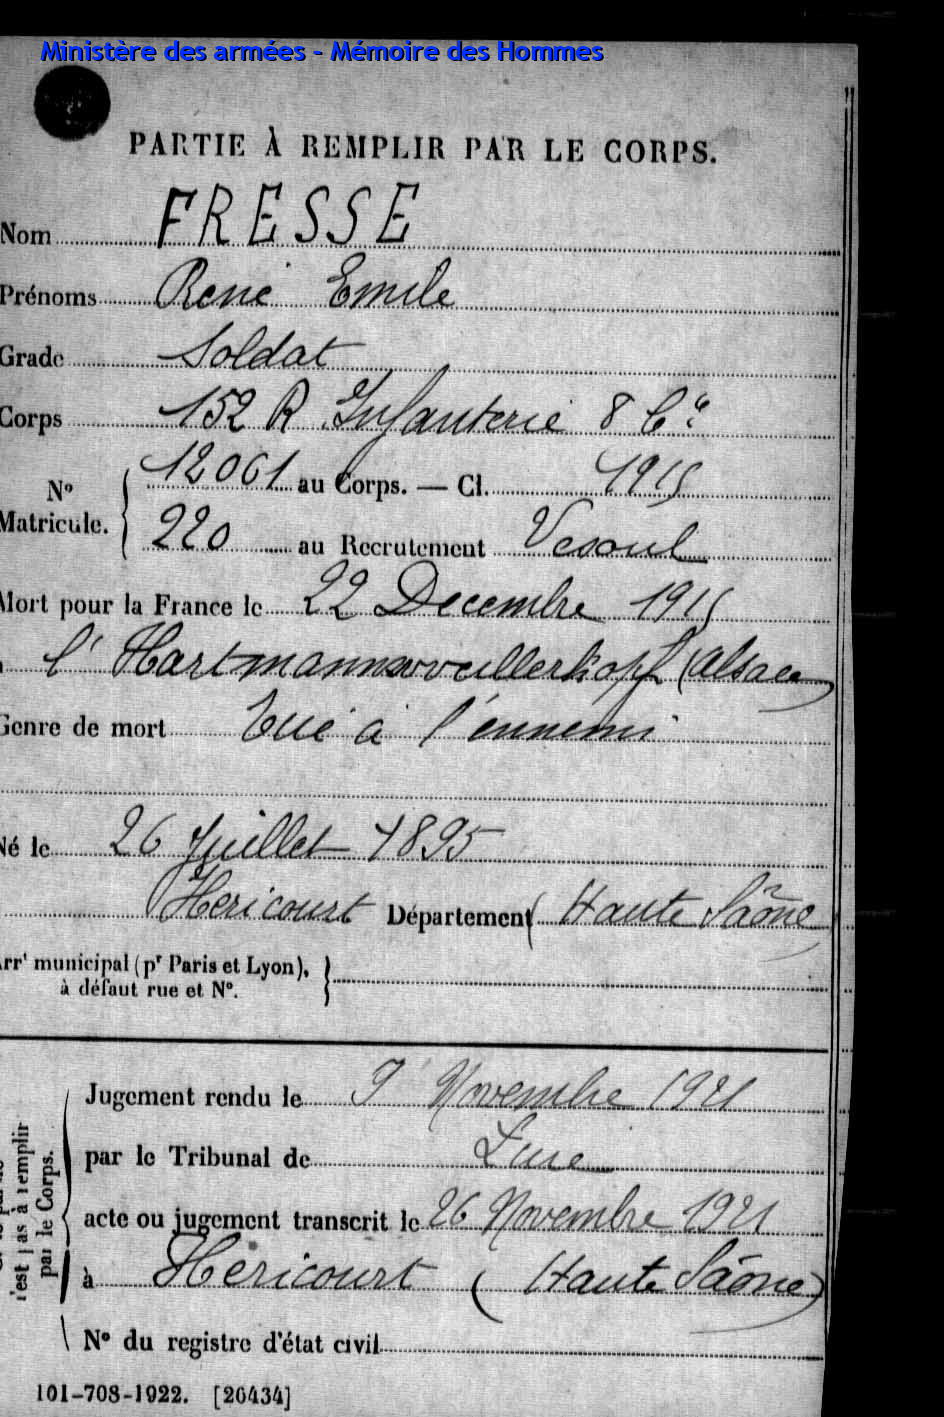 Ministère des armées - Mémoire des Hommes
PARTIE À REMPLIR PAR LE CORPS.
Nom FRESSE
Prénoms René Emile
Grade Soldat
Corps 152 R. Infanterie 8 Cie
No Matricule. 12061 au Corps. — Cl. 1915
220 au Recrutement Vesoul
Mort pour la France le 22 Decembre 1915
l'Hartmannsweillerkopf (Alsace)
Genre de mort Tué à l'ennemi
Né le 26 Juillet 1895
Hericourt Département (Haute Saône)
Arrt municipal (pr Paris et Lyon),
à défaut rue et No.
Jugement rendu le 9 Novembre 1921
par le Tribunal de Lure
acte ou jugement transcrit le 26 Novembre 1921
à Hericourt (Haute Saône)
No du registre d'état civil
n'est pas à remplir
par le Corps.
101-708-1922. [26434]